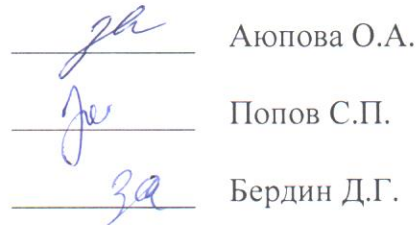 за Аюпова О.А.
за Попов С.П.
за Бердин Д.Г.